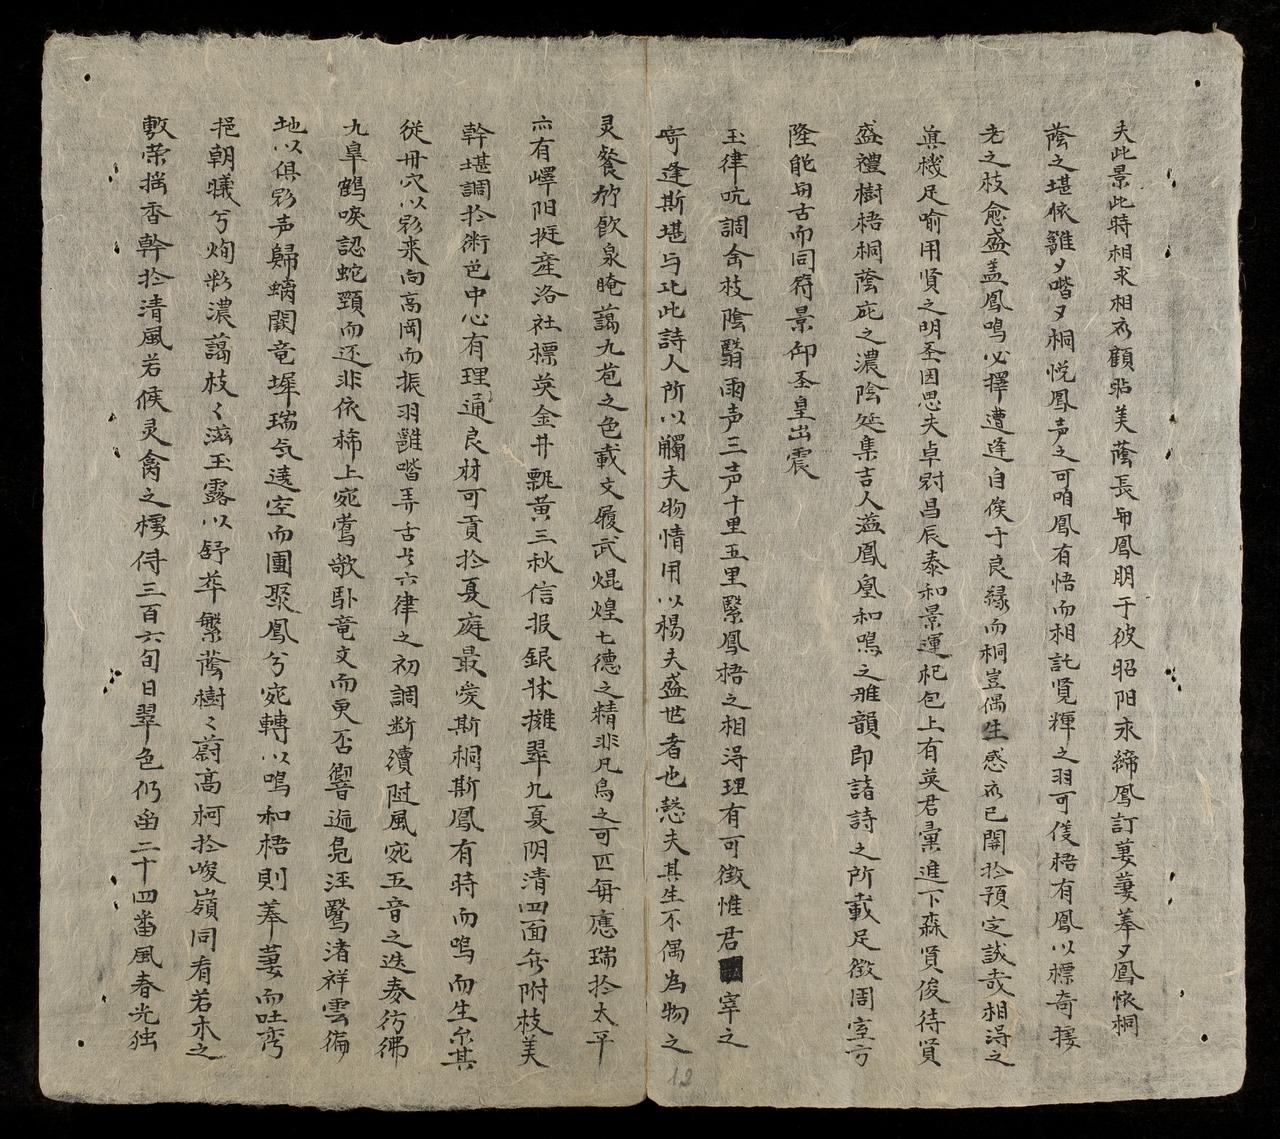 夫此景此時相求相求顧玷美蔭長与鳳朋于彼昭阳永締鳳訂萋萋菶夕鳳懷桐
蔭之堪依雝夕喈夕桐悦鳳声之可咱鳳有悟而相託覽輝之羽可俴梧有鳳以標奇接
老之枝愈盛盖鳳鳴必擇遭逢自俟于良緣而桐豈偶生感求已開扵預定誠哉相淂之
眞機足喻用賢之明圣因思夫卓尉昌辰泰和景運杞包上有英君彙進下森賢俊待賢
盛禮樹梧桐蔭庇之濃陰延集吉人溢鳳凰和鳴之雅韻即諸詩之所載足徵周室方
隆能与古而同符景仰圣皇出震
玉律吭調含枝陰翳雨声三声十里五里緊鳳梧之相淂理有可徵惟君宰之
竒逢斯堪与比此詩人所以觸夫物情用以楊夫盛世者也慭夫其生不偶為物之
灵餐竹飲泉晻藹九苞之色載文履武焜煌七德之精非凡鳥之可匹每應瑞扵太平
亦有嶧阳挺産洛社標英金井飄黄三秋信报銀牀擁翠九夏阴清四面旁附枝美
幹堪調扵術芭中心有理通良材可貢扵夏庭最爱斯桐斯鳳有時而鳴而生尔其
從丹穴以彩来向高岡而振羽雝喈弄舌兮六律之初調断續随風宛五音之迭奏彷彿
九皐鶴唳認蛇頸而还非依柹上宛鶯歌卧竜文而更否響遍凫涇鷖渚祥雲徧
地以俱彩声歸螭闕竜墀瑞気逺空而團聚鳳兮宛轉以鳴和梧則菶萋而吐鸾
挹朝曦兮炯彩濃藹枝〻滋玉露以舒莘繁蔭樹〻蔚高柯扵峻嶺同看若木之
敷荣搖香幹扵清風若候灵禽之樓侍三百六旬日翠色仍凾二十四番風春光独
12